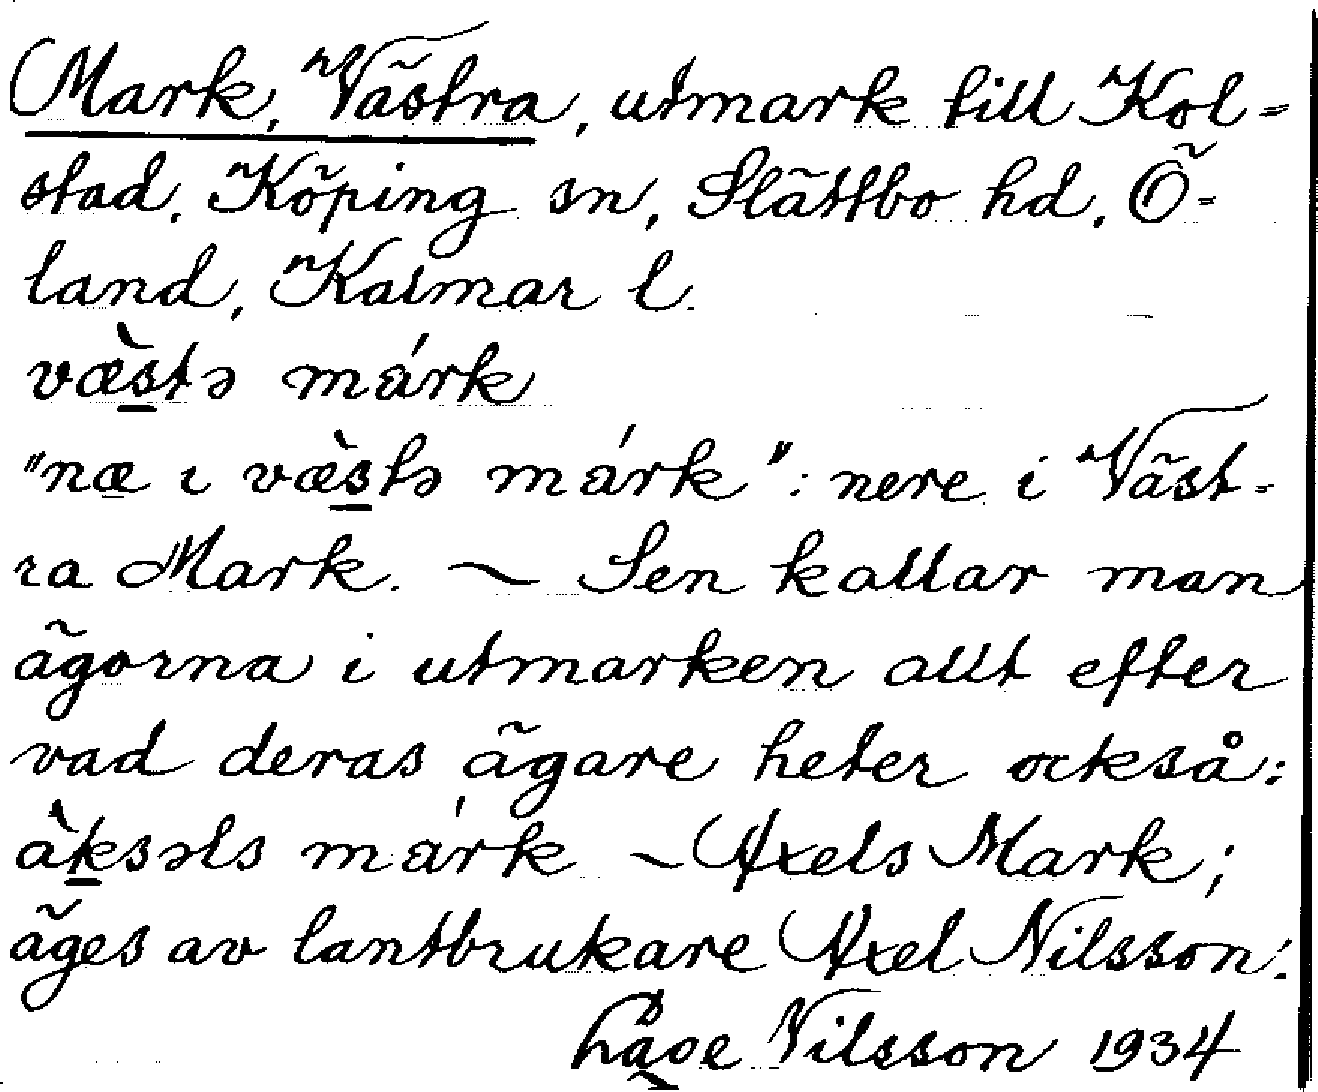 Mark, Västra, utmark till Kol-
stad, Köping sn, Slättbo hd, Ö-
land, Kalmar l.
væ̀stə márk
"næ ı væ̀stə márk": nere i Väst-
ra Mark. — Sen kallar man
ägorna i utmarken allt efter
vad deras ägare heter också:
àksəls márk — Axels Mark;
äges av lantbrukare Axel Nilsson.
Nilsson 1934